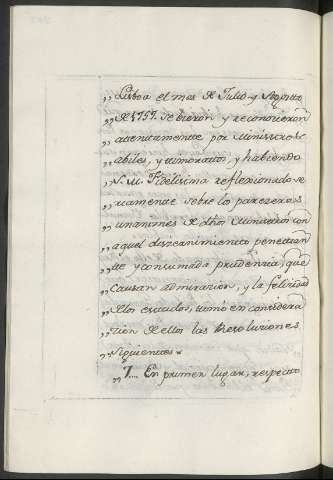 „Lisboa el mes de Julio y Agosto
„de 1757. se vieron, y reconocieron
„attentamente por Ministros
„abiles, y timoratos, y habiendo
„S. M. Fidelisima reflexionado se
„riamente sobre lo pareceres
„unanimes de dhos Ministros con
„aquel discernimiento penetran
„te y consumada prudencia, que
„causan admiracion, y la felicidad
„de los escudos, tomó en considera
„cion de ellos las Resoluciones
„siguientes.
„1... En primer lugar, respecto